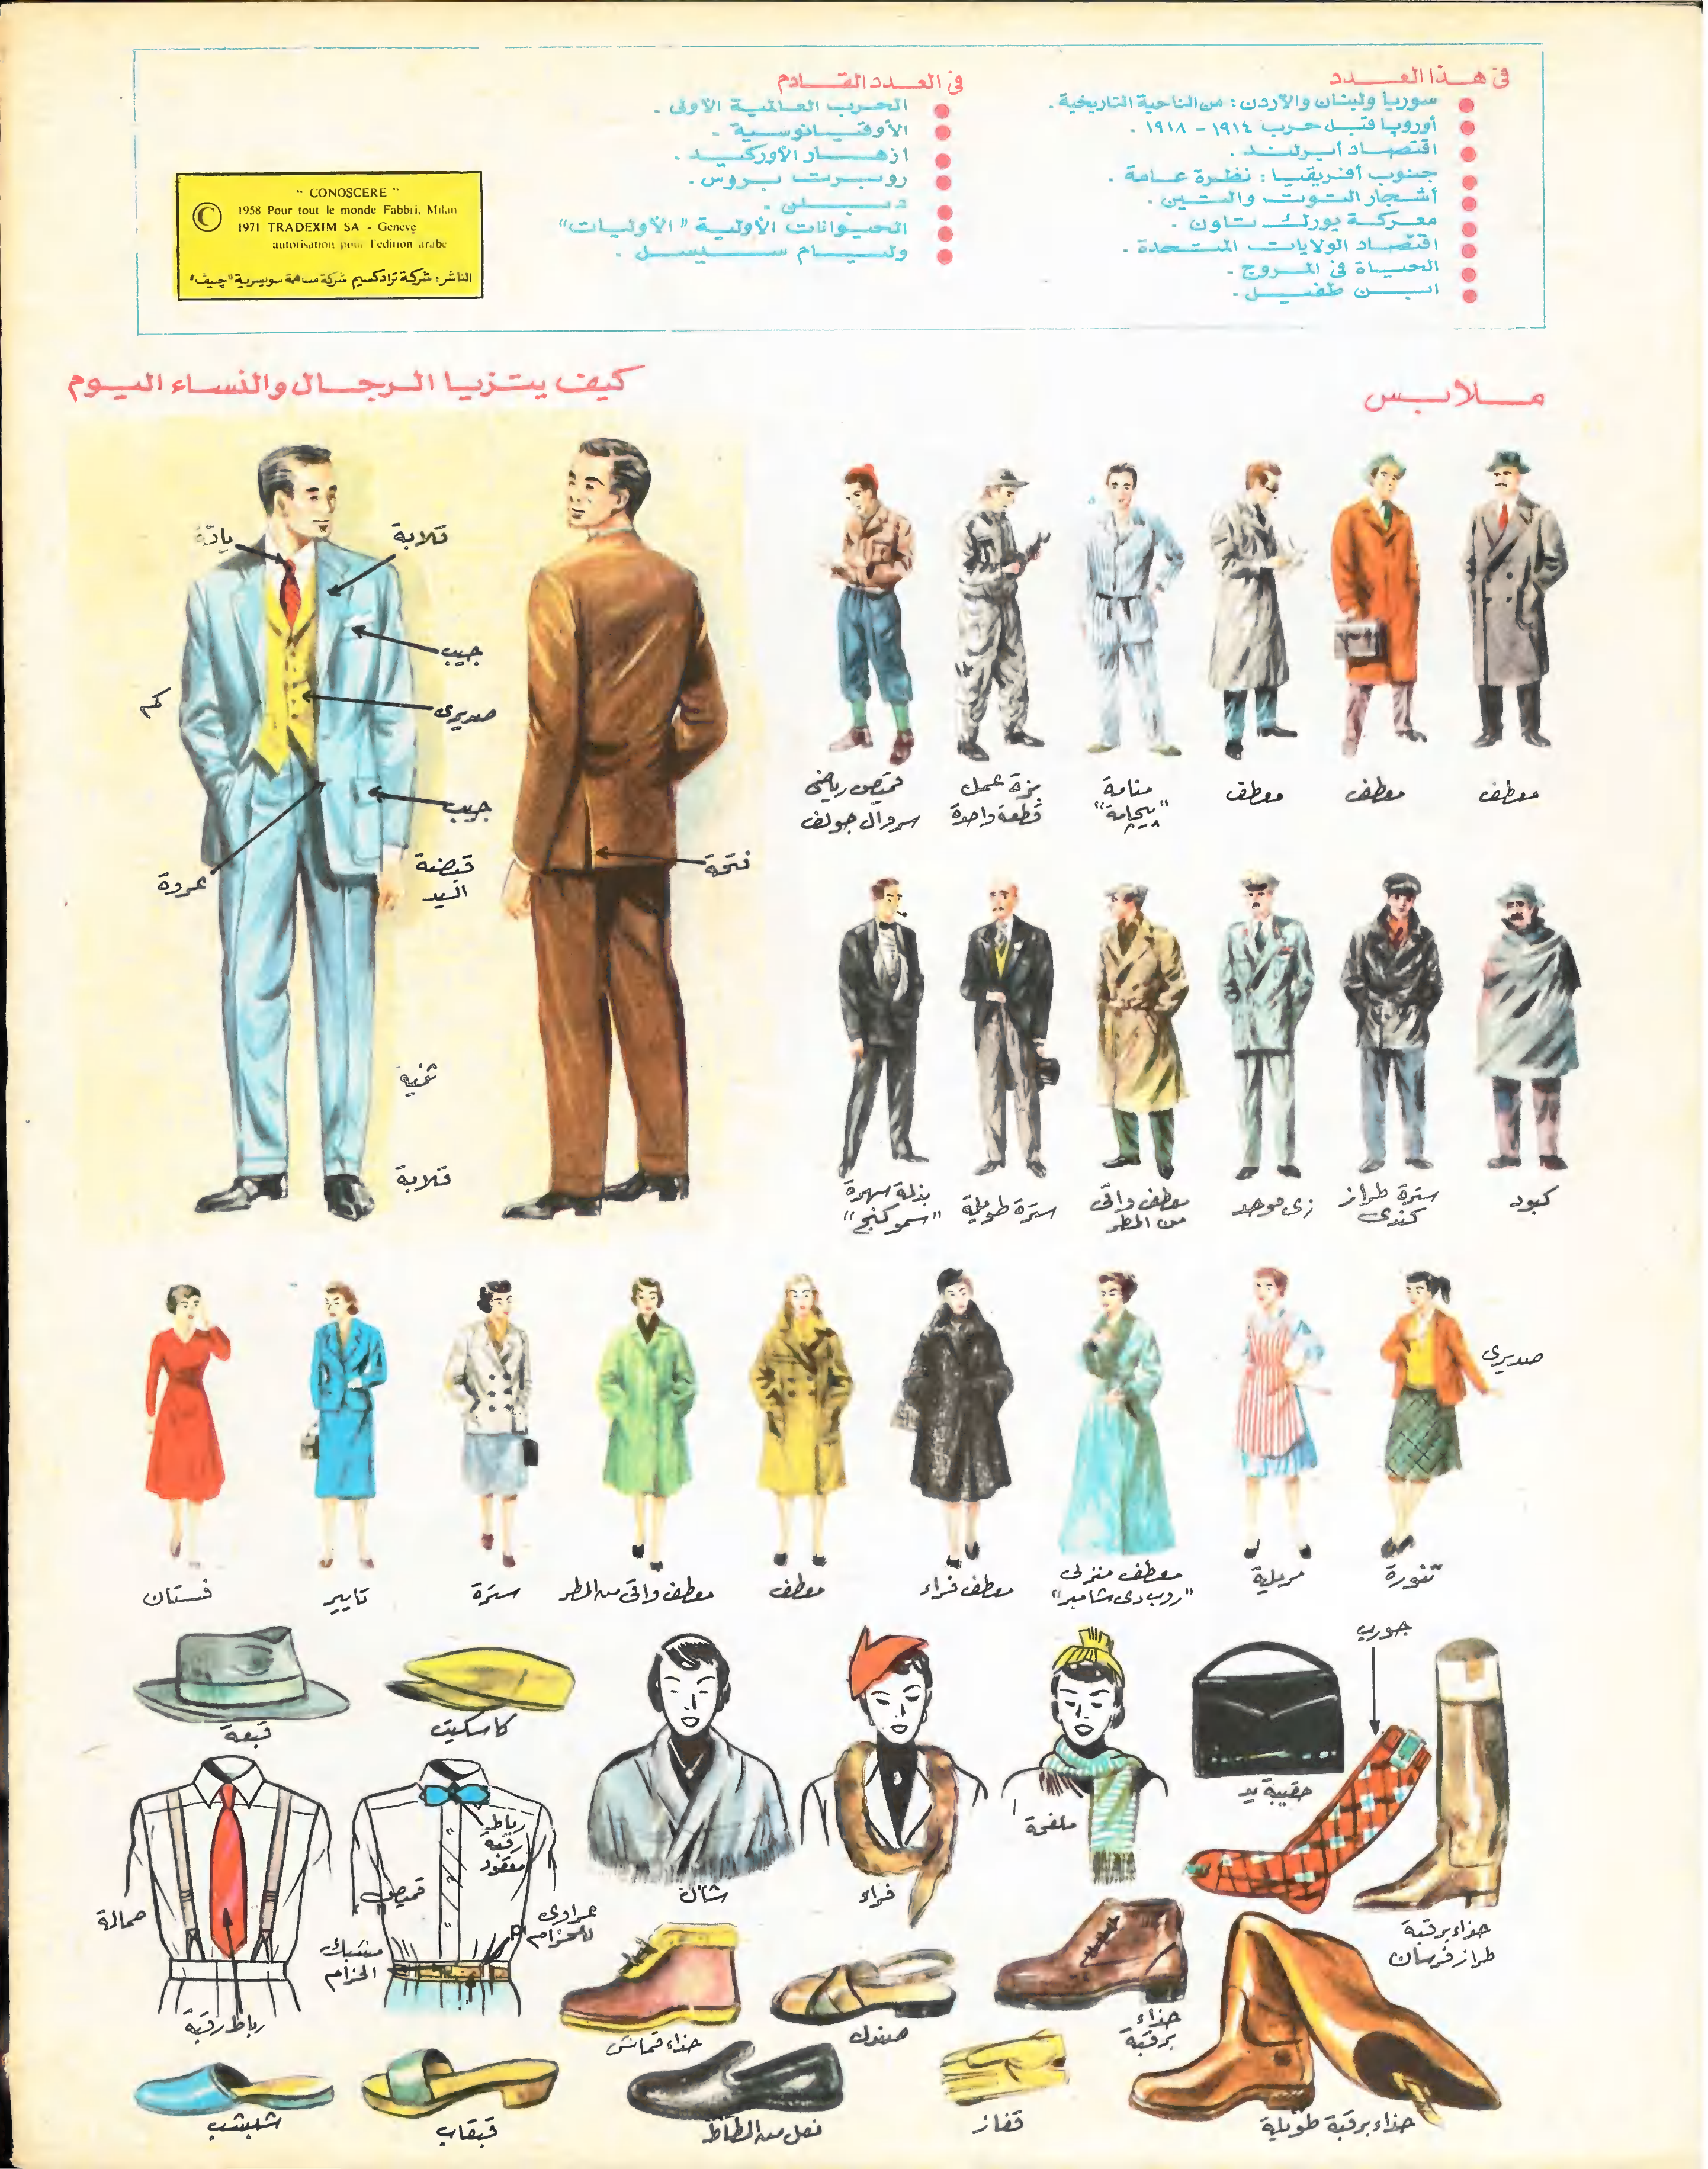 فى هذا العدد
سوريا ولبنان والأردن : من الناحية التاريخية .
أوروبا قبل حرب ١٩١٤ - ١٩١٨ .
اقتصاد أيرلند .
جنوب أفريقيا : نظرة عامة .
أشجار التوت والتين .
معركة يورك تاون .
اقتصاد الولايات المتحدة .
الحياة فى المروج .
ابن طفيل .
فى العدد القادم
الحرب العالمية الأولى .
الأوقيانوسية .
ازهار الأوركيد .
روبرت بروس .
دبلن .
الحيوانات الأولية "الأوليات"
وليام سيسل .
" CONOSCERE "
©
1958 Pour tout le monde Fabbri, Milan
1971 TRADEXIM SA - Geneve
autorisation pour l'edition arabe
الناشر : شركة ترادكسيم شركة مساهمة سويسرية "چنيف"
ملابس
كيف يتزيا الرجال والنساء اليوم
ياقة
قلابة
جيب
كم
صديرى
جيب
عروة
قبضة
اليد
فتحة
ثنية
قلابة
معطف
معطف
معطف
منامة
"بيچامة"
بزة عمل
قطعة واحدة
قميص رياضى
سروال جولف
كبود
سترة طراز
كندى
زى موحد
معطف واقى
من المطر
سترة طويلة
بذلة سهرة
"سموكنج"
صديرى
تنورة
مريلة
معطف منزلى
"روب دى شامبر"
معطف فراء
معطف
معطف واقى من المطر
سترة
تايير
فستان
جورب
قبعة
كاسكيت
شال
فراء
ملفحة
حقيبة يد
حذاء برقبة
طراز فرسان
حمالة
رباط رقبة
رباط
رقبة
معقود
قميص
عراوى
للحزام
مشبك
الحزام
حذاء قماش
صندل
حذاء
برقبة
شبشب
قبقاب
نعل من المطاط
قفاز
حذاء برقبة طويلة